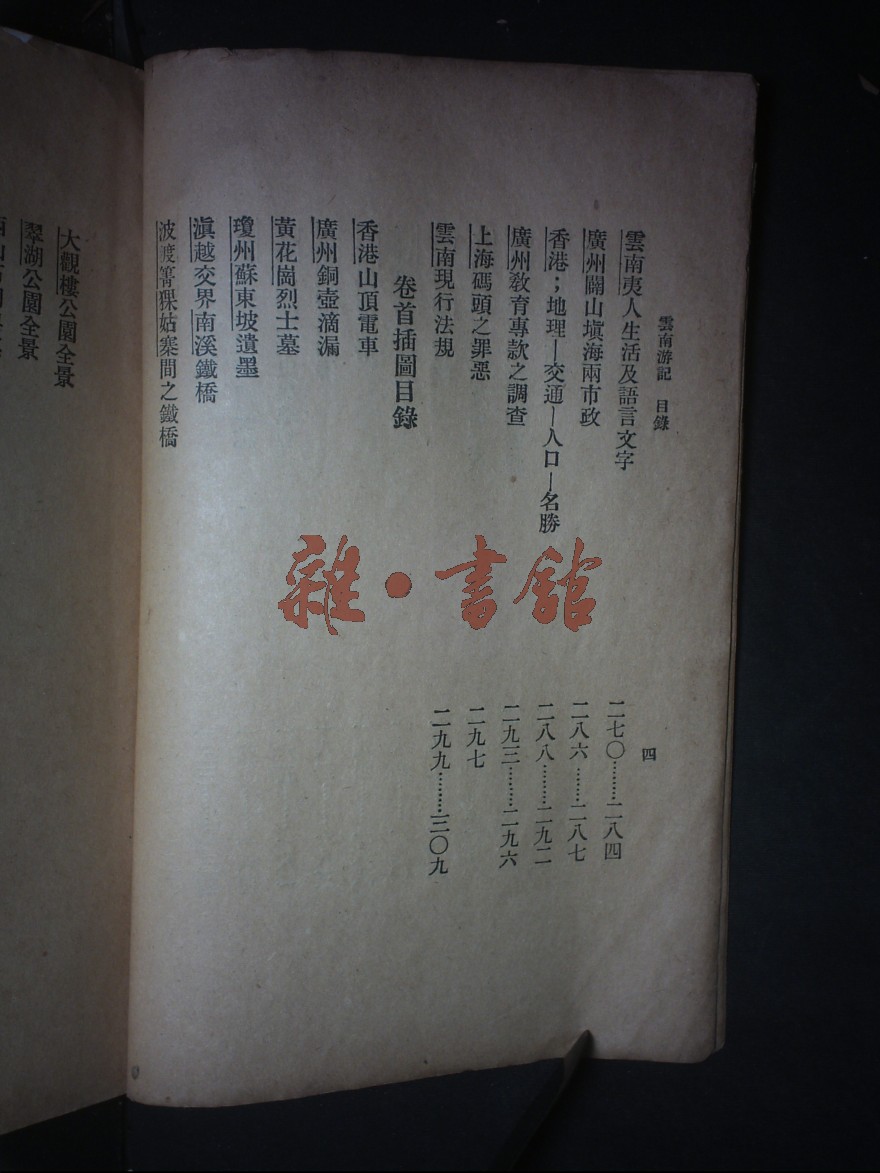 雲南游記　目錄
四
雲南夷人生活及語言文字　二七〇………二八四
廣州關山塡海兩市政　二八六………二八七
香港；地理—交通—人口—名勝　二八八………二九二
廣州教育專款之調查　二九三………二九六
上海碼頭之罪惡　二九七
雲南現行法規　二九九………三〇九
卷首插圖目錄
香港山頂電車
廣州銅壺滴漏
黃花崗烈士墓
瓊州蘇東坡遺墨
滇越交界南溪鐵橋
波渡箐猓姑寨間之鐵橋
大觀樓公園全景
翠湖公園全景
雜·書館